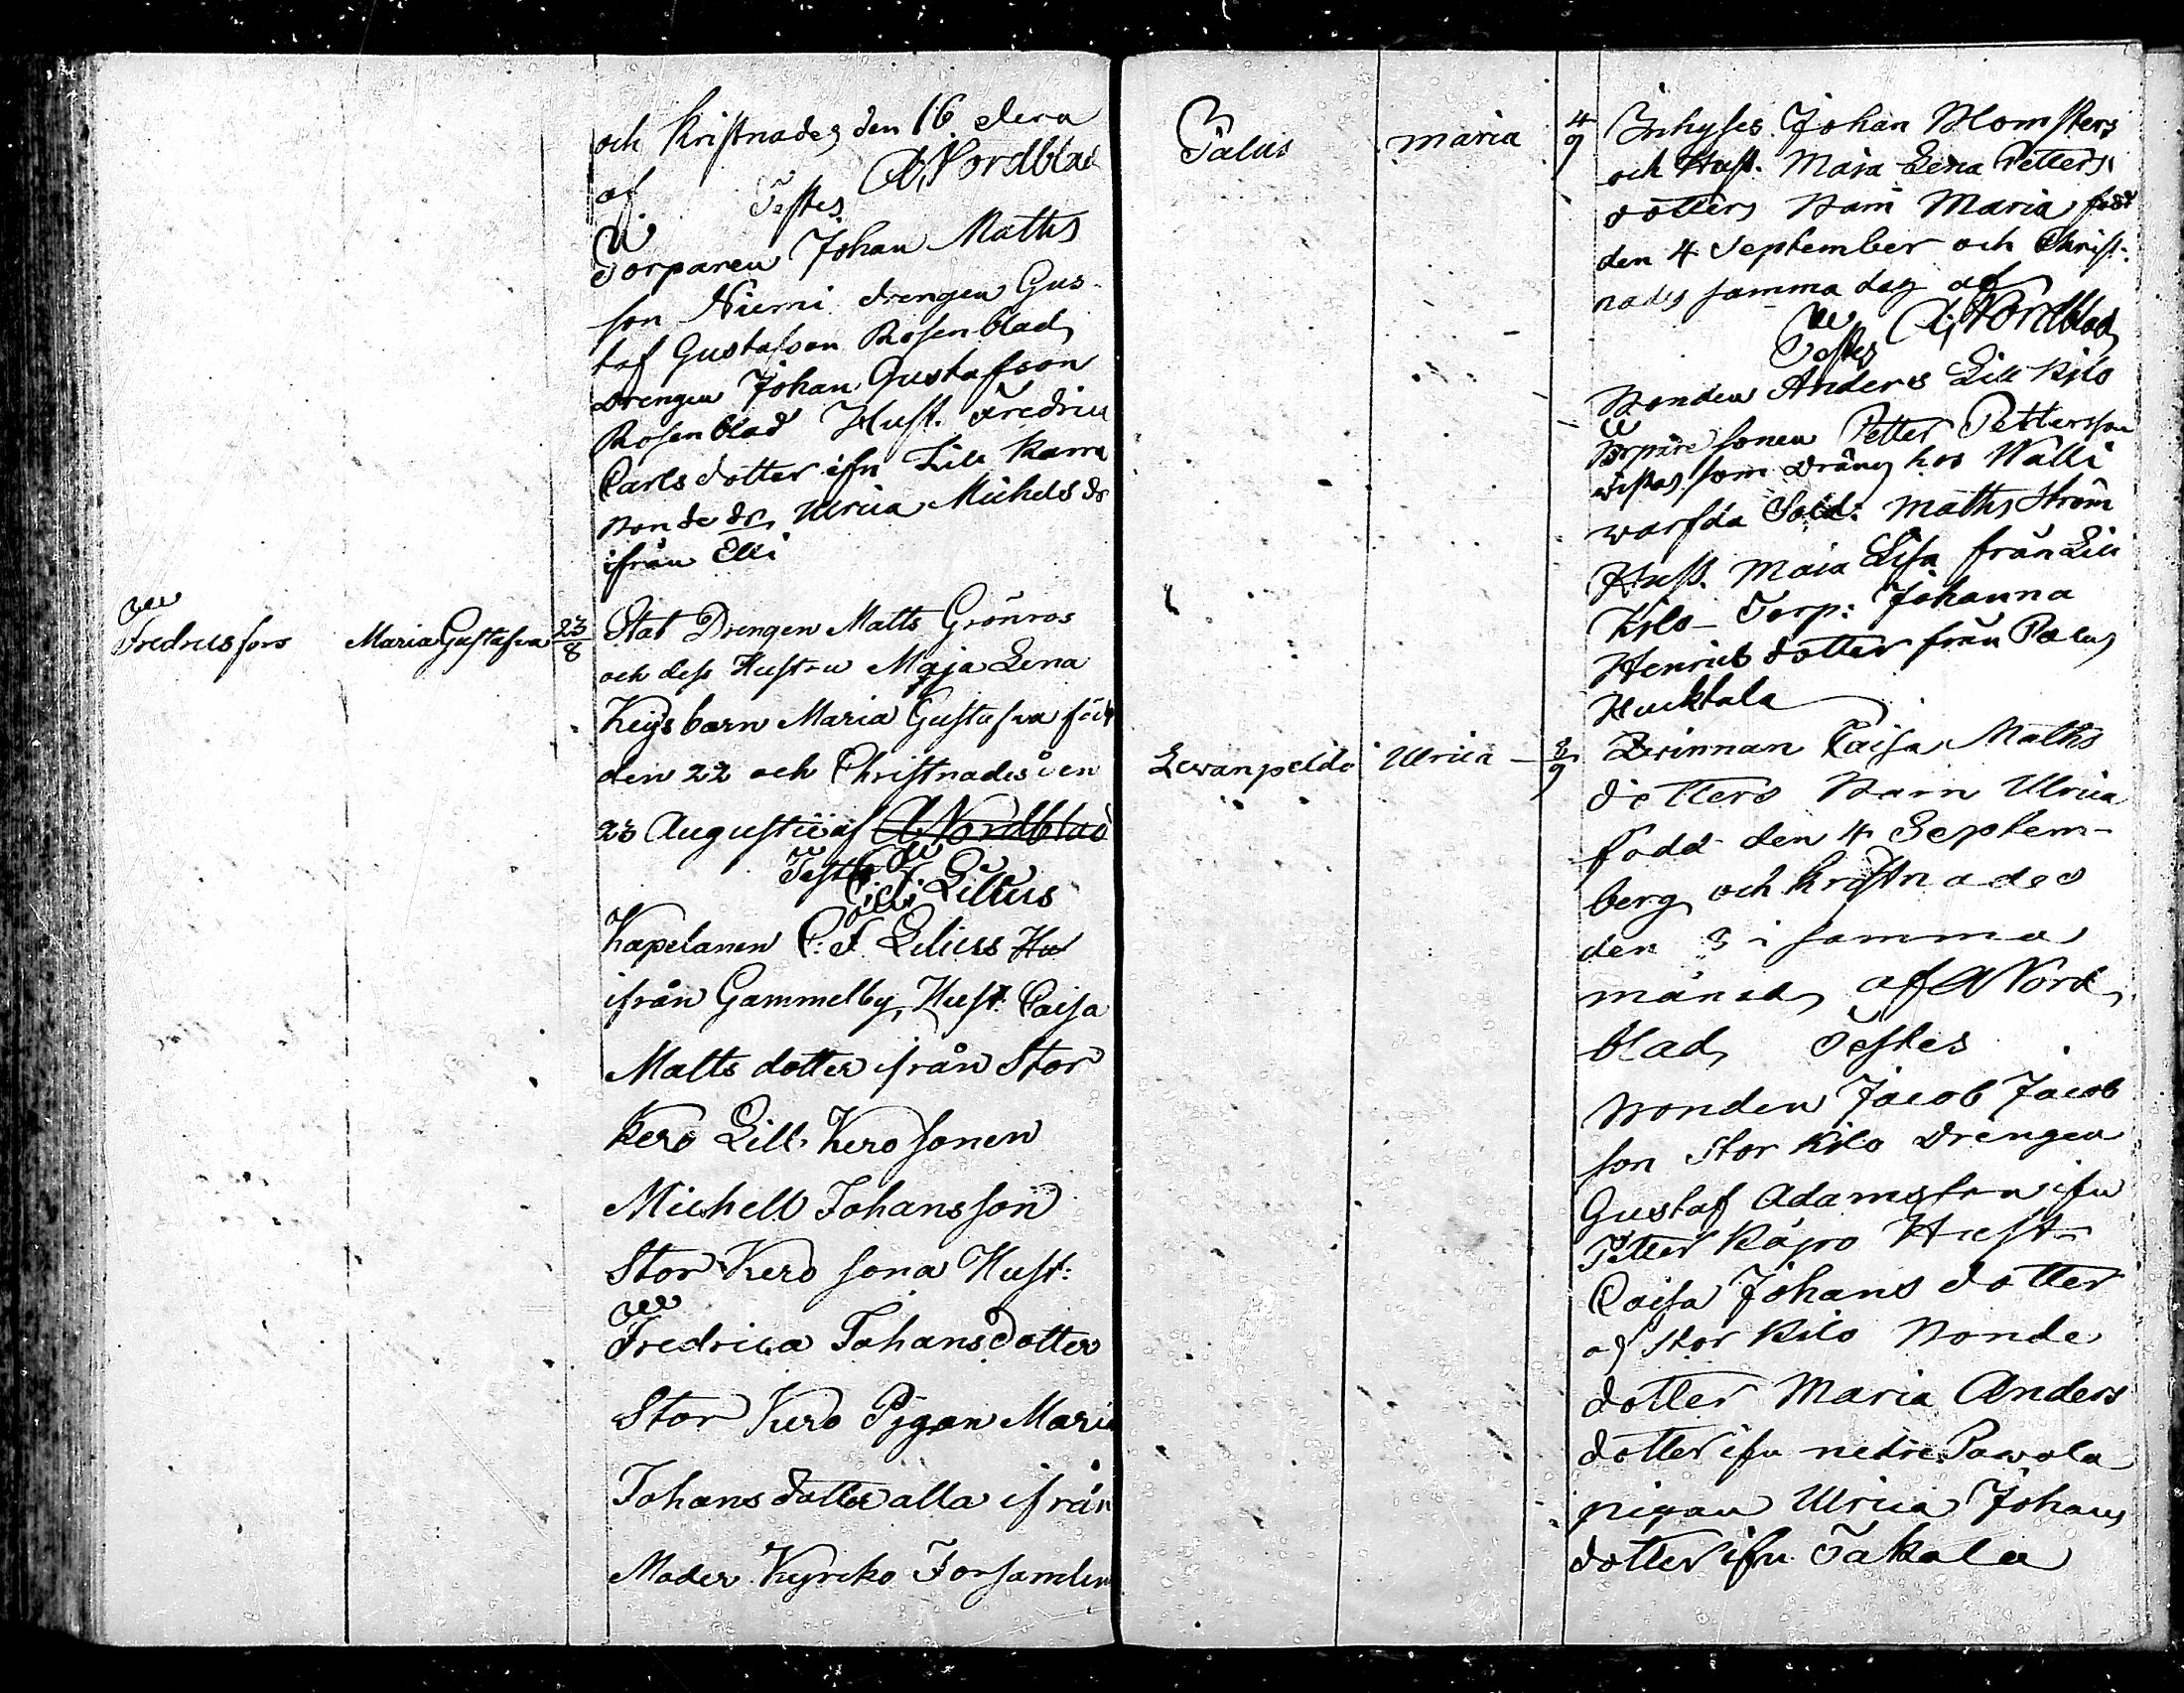 och Kristnades den 16 dera
af A. Nordblad
Testes
Torparen Johan Matts
son Niemi drengen Gus-
taf Gustafson Rosenblad
Drengen Johan Gustafsson
Rosenblad Hust. Fredrica
Carls dotter ifrn Lill Karra
Bonde dr Ulrica Michels dr
ifrån Elli
Fredricsfors Maria Gustafva 23/8 Stat Drengen Matts Grönros
och dess Hustru Maja Lena
barn Maria Gustafva född
den 22 och Christnades den
23 Augustii af A Nordblad
Testes
Lilius
Kapelanen C: F. Lilius Hu
ifrån Gammelby, Hust. Caisa
Matts dotter ifrån Stor
Kero Lill Kero sonen
Michell Johansson
Stor Kero sona Hust:
Fredrica Johansdotter
Stor Kero Pigan Maria
Johans dotter alla ifrån
Moder Kyrcko Forsamlin
Palus Maria 4/9 Inhyses Johan Blomsters
och Hust. Maia Lena Petters
dotters Barn Maria född
den 4 September och Christ-
nades samma dag af
A. Nordblad
Testes
Bonden Anders Lill Kilo
Torpare sonen Petter Pettersson
som dräng hos Walli
Sold: Matts Ström
Hust. Maia Lisa från Lill
Kilo Torp: Johanna
Henrics dotter från Palus
Hucktala
Lewanpeldo Ulrica 3/9 Qvinnan Caisa Matts
dotters Barn Ulrica
född den 4 Septem-
berg och Kristnades
den 3 i samma
månad, af A Nord
blad, Testes
Bonden Jacob Jacob
son Stor Kilo Drengen
Gustaf Adamsson ifrn
Petter Käpro Hust
Caisa Johans dotter
af Stor Kilo Bonde
dotter Maria Anders
dotter ifrn nedre Pawola
pigan Ulrica Johans
dotter ifrn Takala